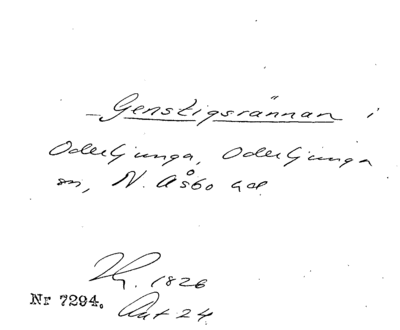 Genstigsrännan i
Oderljunga, Oderljunga
sn, N. Åsbo hd
1826
Nr 7294. Akt 24